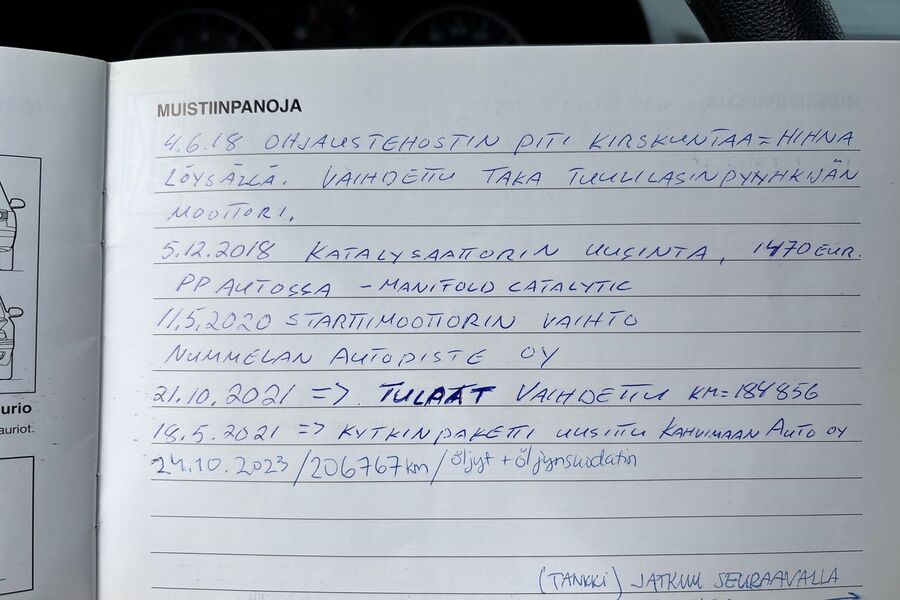 MUISTIINPANOJA
4.6.18 OHJAUSTEHOSTIN PITI KIRSKUNTAA = HIHNA
LÖYSÄLLÄ. VAIHDETTU TAKA TUULILASINPYYHKIJÄN
MOOTTORI.
5.12.2018 KATALYSAATTORIN UUSINTA, 1470 EUR.
PP AUTOSSA - MANIFOLD CATALYTIC
11.5.2020 STARTTIMOOTTORIN VAIHTO
NUMMELAN AUTOPISTE OY
21.10.2021 => TULPAT VAIHDETTU KM=184856
18.5.2021 => KYTKINPAKETTI UUSITTU KAHVIMAAN AUTO OY
24.10.2023 / 206767 km / öljyt + öljynsuodatin
(TANKKI) JATKUU SEURAAVALLA
urio
auriot.